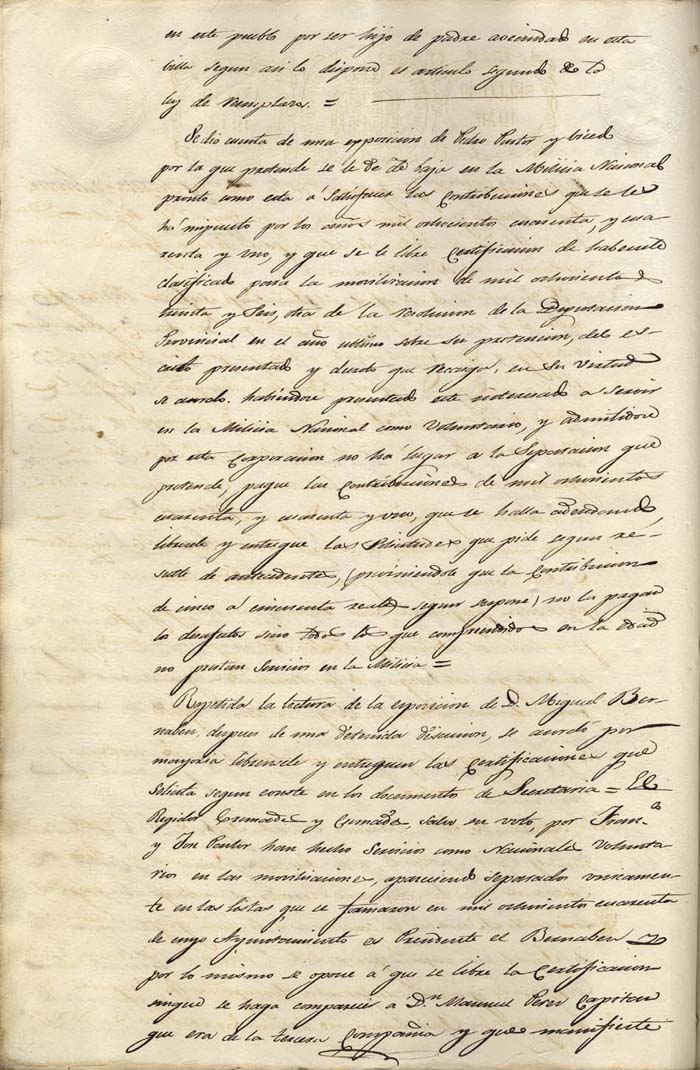 en este pueblo por ser hijo de padre avecindado en esta
villa segun asi lo dispone el articulo segundo de la
ley de Remplazos. =
Se dio cuenta de una exposicion de Pedro Pastor y
por la que pretende se le dé de baja en la Milicia Nacional
pronto como esta á satisfacer las Contribuciones que se le
há impuesto por los años mil ochocientos cuarenta, y cua
renta y uno, y que se le libre Certificacion de habersele
clasificado para la movilizacion de mil ochocientos
treinta y Seis, otra de la resolucion de la Diputacion
Provincial en el año ultimo sobre su pretencion, del es-
crito presentado y decreto que recaiga, en su virtud
se acordo. habiendose presentado este interesado a Servir
en la Milicia Nacional como Voluntario, y admitidose
por esta Corporacion no há lugar a la Separacion que
pretende, pague las Contribuciones de mil ochocientos
cuarenta, y cuarenta y uno, que se halla adeudando,
librensele y entreguen las que pide segun re-
sulte de antecedentes, (previniendole que la Contribucion
de cinco á cincuenta reales segun supone) no la pagan
los sino todos los que comprendidos en la edad
no prestan Servicios en la Milicia =
Repetida la lectura de la esposicion de D. Miguel Ber-
nabeu, despues de una detenida discusion, se acordó por
mayoria librensele y entreguen las Certificaciones que
Solicita segun conste en los documentos de Secretaria = El
Regidor Cremades y salva su voto, por Fran.co
y José Pastor han hecho Servicios como Nacionales Volunta
rios en las movilizaciones, apareciendo separados unicamen-
te en las listas que se formaron en mil ochocientos cuarenta
de cuyo Ayuntamiento es Presidente el Bernabeu
por lo mismo se opone á que se libre la Certificacion
se haga comparecer á D.n Manuel Perez Capitan
que era de la tercera Compañia y que manifieste